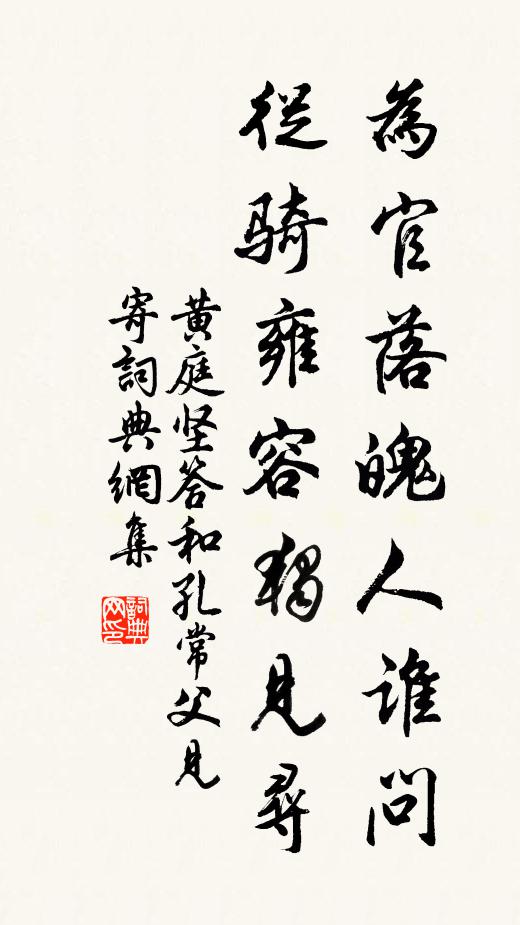 為官落魄人誰問
從騎雍容獨見尋
黄庭坚答和孔常父見
寄詞典網集
詞典
网印